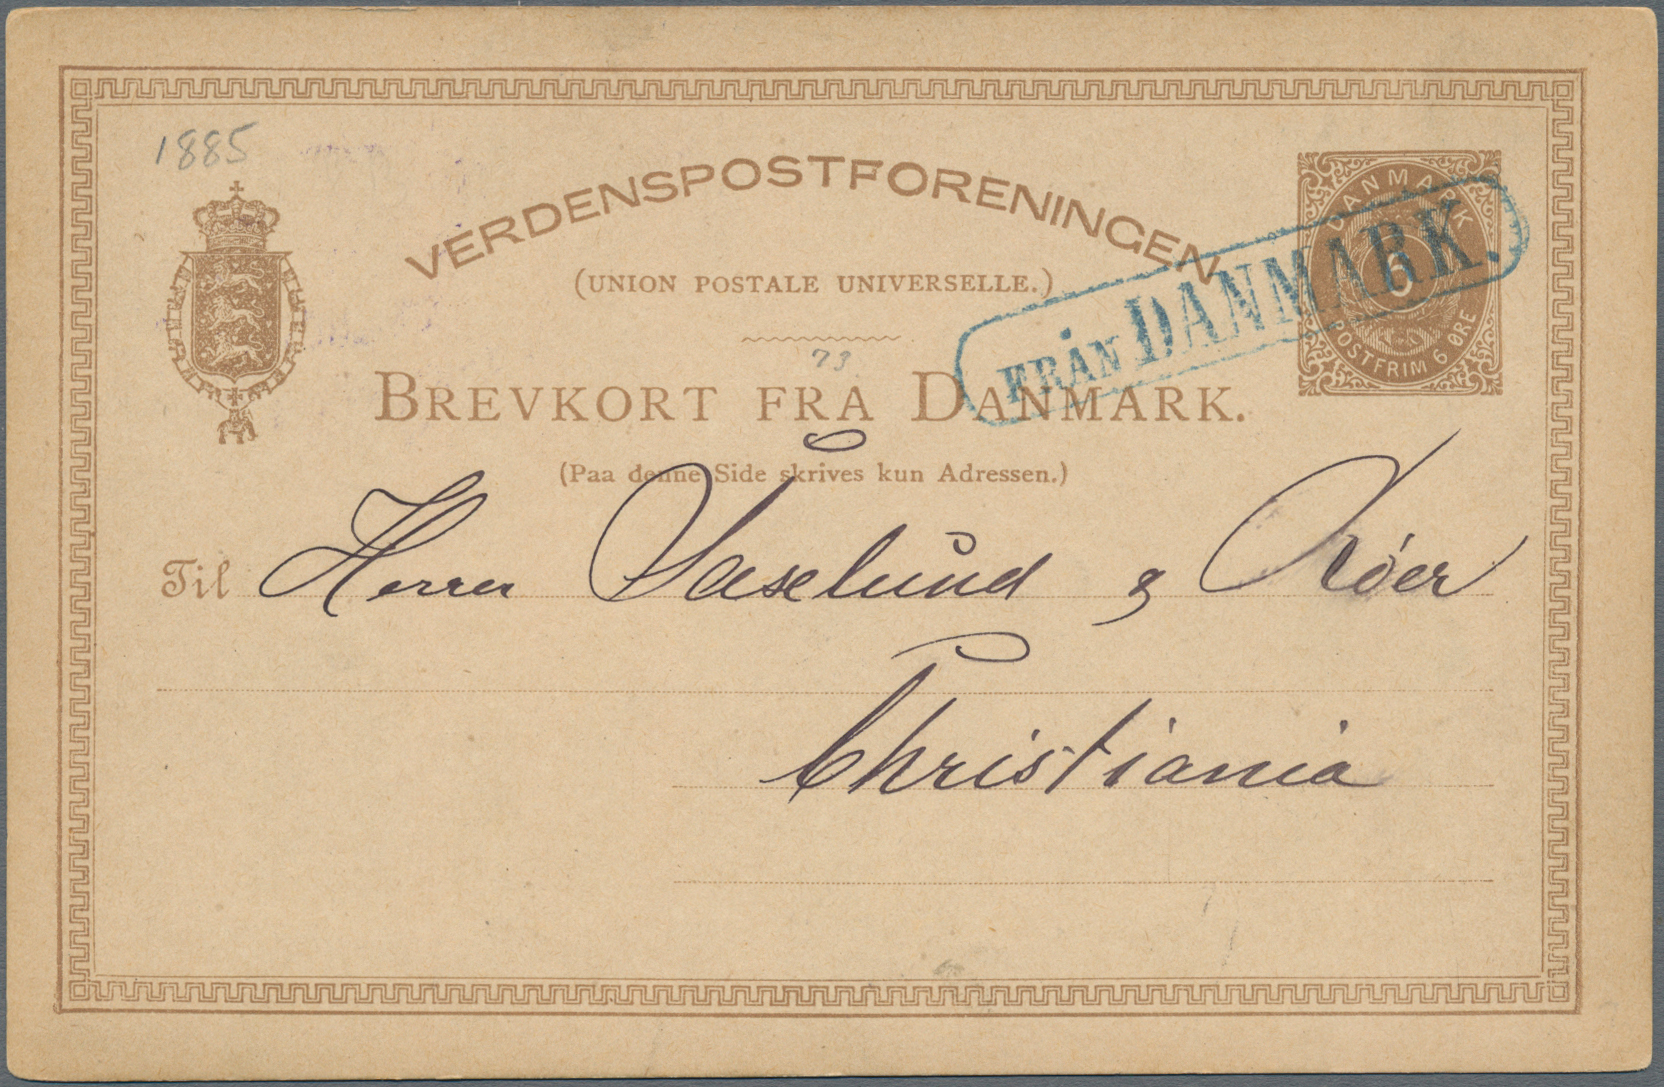 1885
VERDENSPOSTFORENINGEN
(UNION POSTALE UNIVERSELLE.)
DANMARK
6
POSTFRIM 6 ØRE
FRÅN DANMARK.
73
BREVKORT FRA DANMARK.
(Paa denne Side skrives kun Adressen.)
Til Herrer &
Christiania